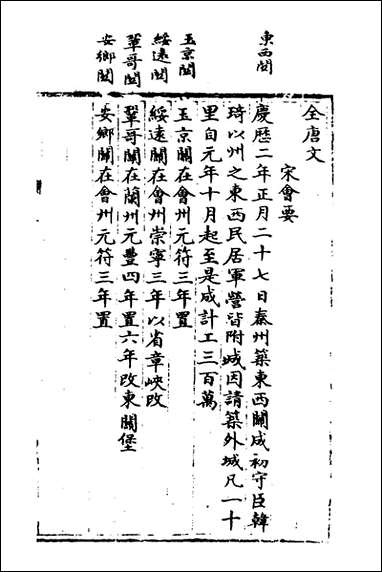 東西關
玉京關
綏遠關
鞏哥關
安鄉關
全唐文
宋會要
慶歷二年正月二十七日秦州築東西關成初守臣韓
琦以州之東西民居軍營皆附城因請築外城凡一十
里自元年十月起至是成計工三百萬
玉京關在會州元符三年置
綏遠關在會州崇寧三年以省章峽改
鞏哥關在蘭州元豐四年置六年改東關堡
安鄉關在會州元符三年置